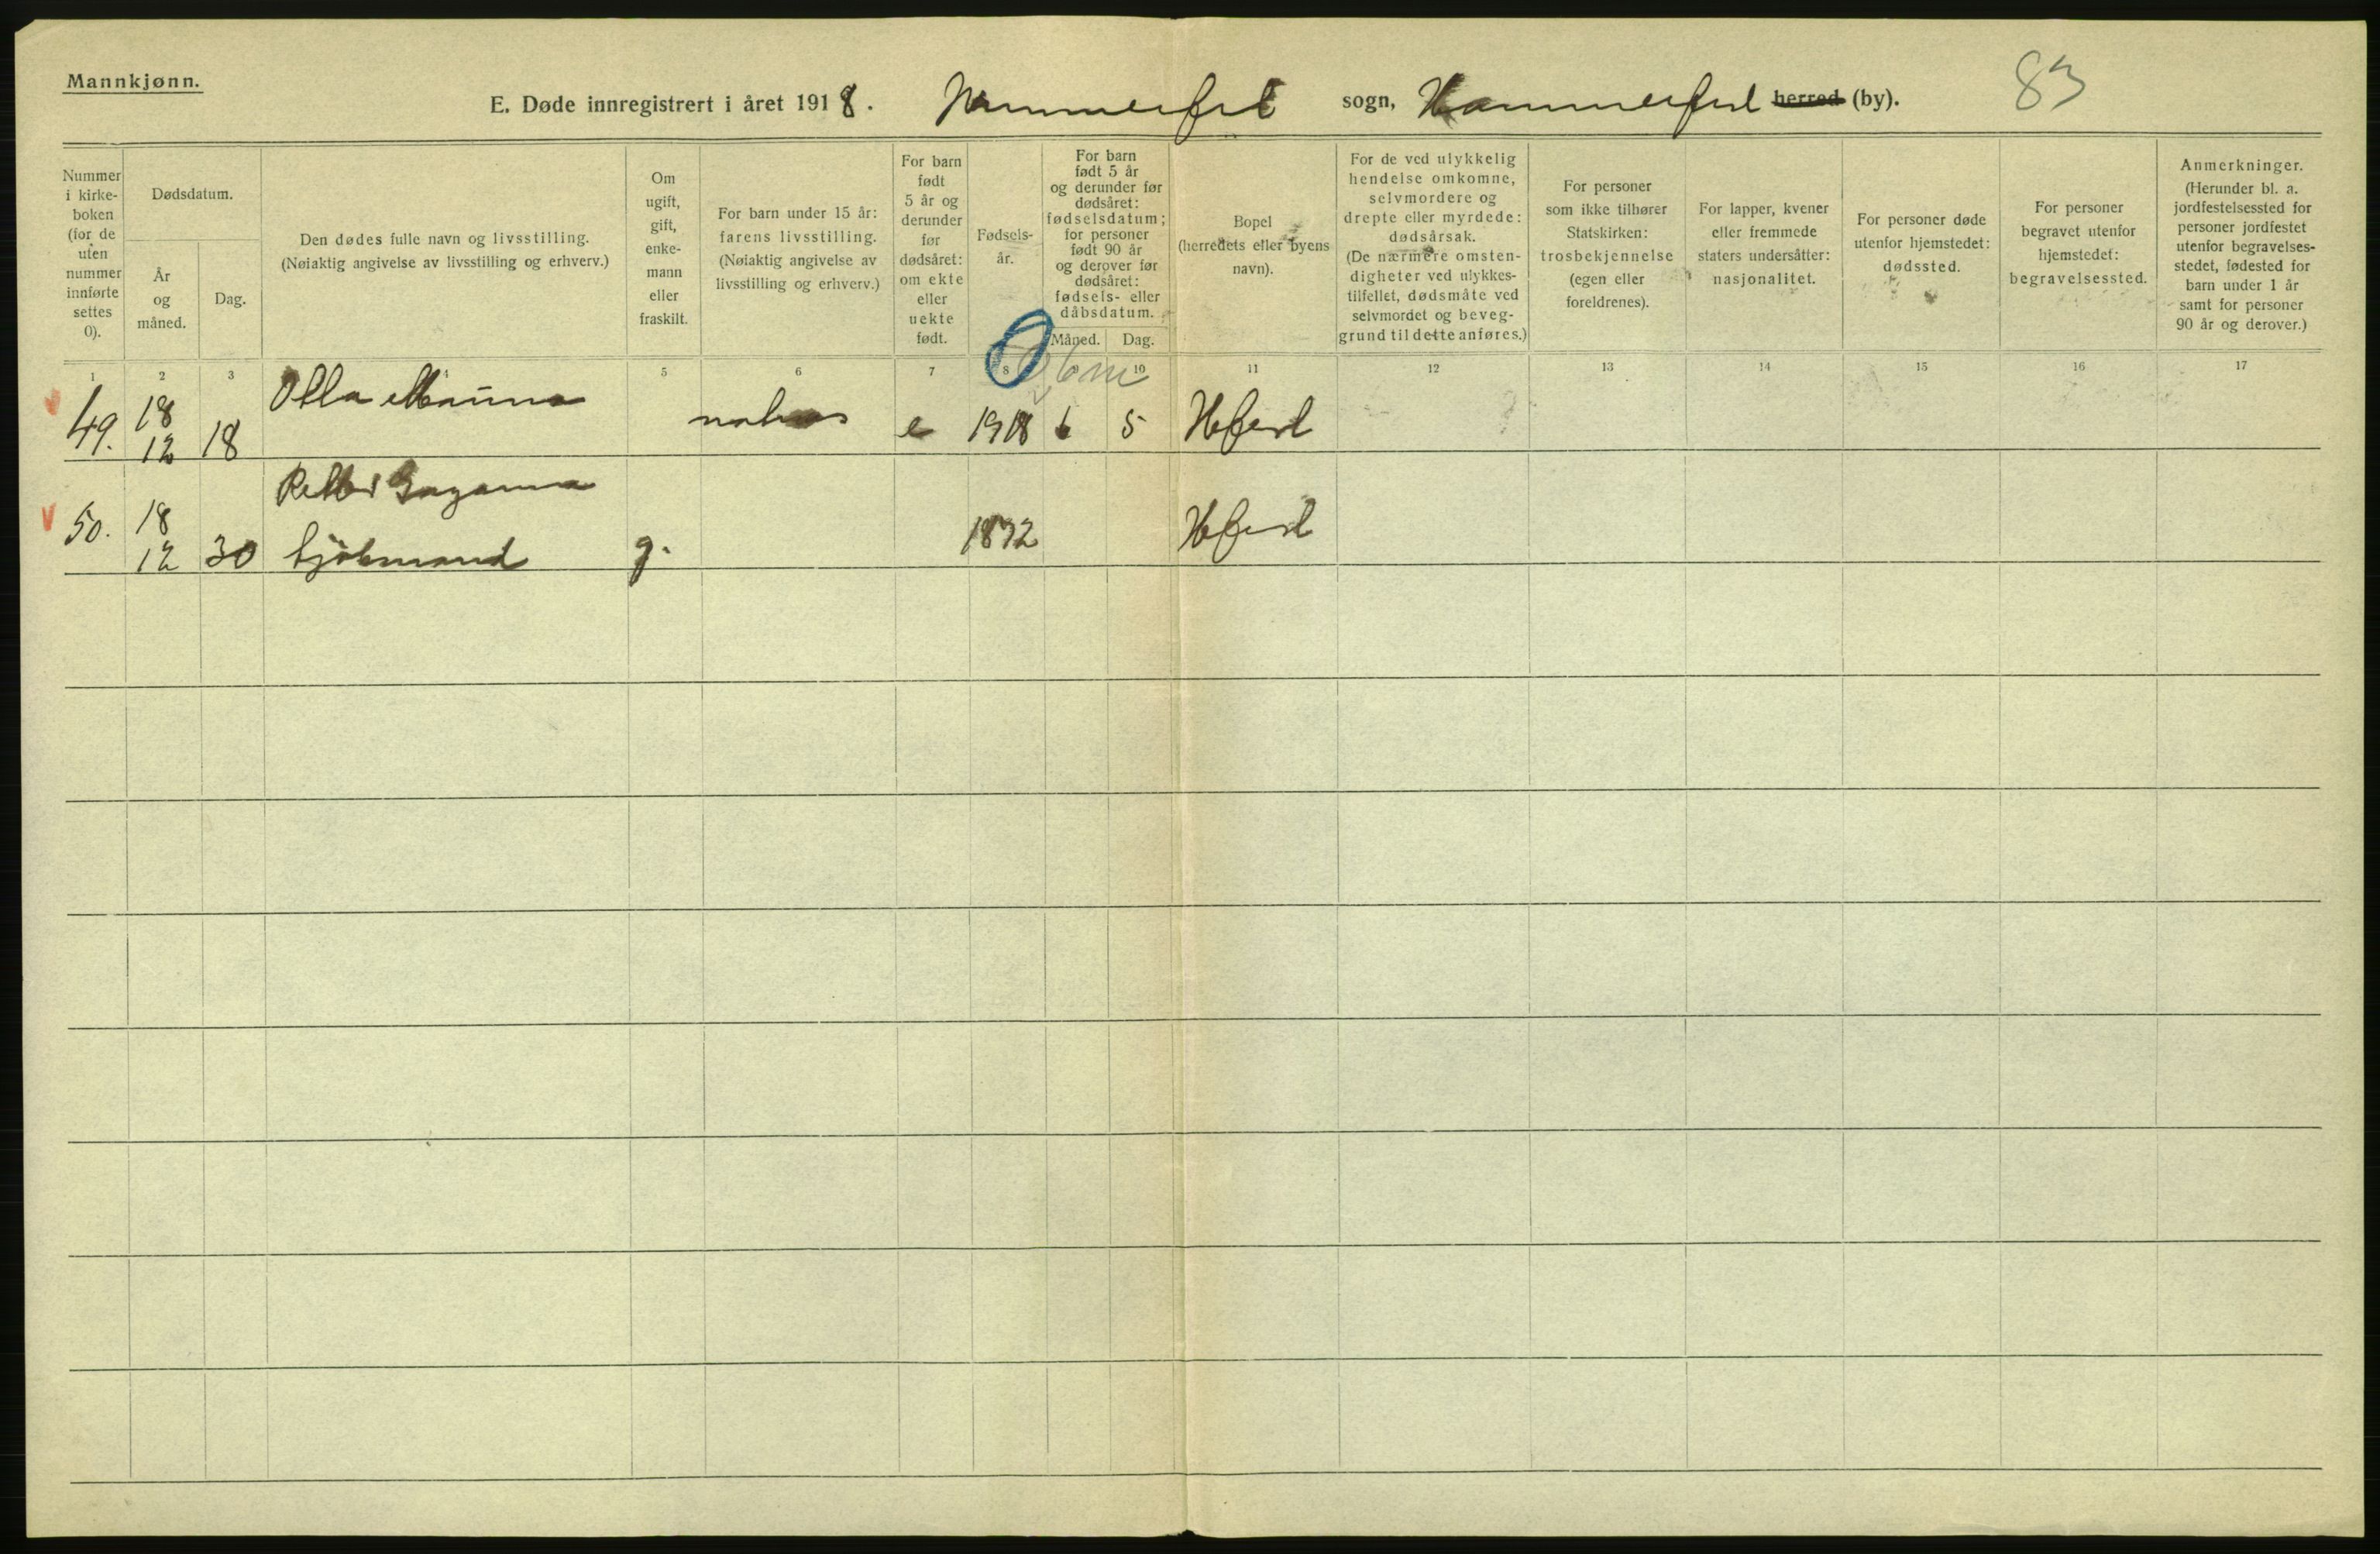 Mannkjønn.
E. Døde innregistrert i året 1918. Hammerfest sogn, Hammerfest herred (by). 83
Nummer i kirke-boken (for de uten nummer innførte settes 0).
Dødsdatum.
År og måned.
Dag.
Den dødes fulle navn og livsstilling.
(Nøiaktig angivelse av livsstilling og erhverv.)
Om ugift, gift, enke-mann eller fraskilt.
For barn under 15 år: farens livsstilling.
(Nøiaktig angivelse av livsstilling og erhverv.)
For barn født 5 år og derunder før dødsåret: om ekte eller uekte født.
Fødsels-år.
For barn født 5 år og derunder før dødsåret: fødselsdatum; for personer født 90 år og derover før dødsåret: fødsels- eller dåbsdatum.
Måned. Dag.
Bopel (herredets eller byens navn).
For de ved ulykkelig hendelse omkomne, selvmordere og drepte eller myrdede: dødsårsak.
(De nærmere omsten-digheter ved ulykkes-tilfellet, dødsmåte ved selvmordet og beveg-grund til dette anføres.)
For personer som ikke tilhører Statskirken: trosbekjennelse (egen eller foreldrenes).
For lapper, kvener eller fremmede staters undersåtter: nasjonalitet.
For personer døde utenfor hjemstedet: dødssted.
For personer begravet utenfor hjemstedet: begravelsessted.
Anmerkninger.
(Herunder bl. a. jordfestelsessted for personer jordfestet utenfor begravelses-stedet, fødested for barn under 1 år samt for personer 90 år og derover.)
1 2 3 4 5 6 7 8 10 11 12 13 14 15 16 17
0 6 m
49. 18 12 18 e 1918 6 5 Hfest
50. 18 12 30 g. 1872 Hfest